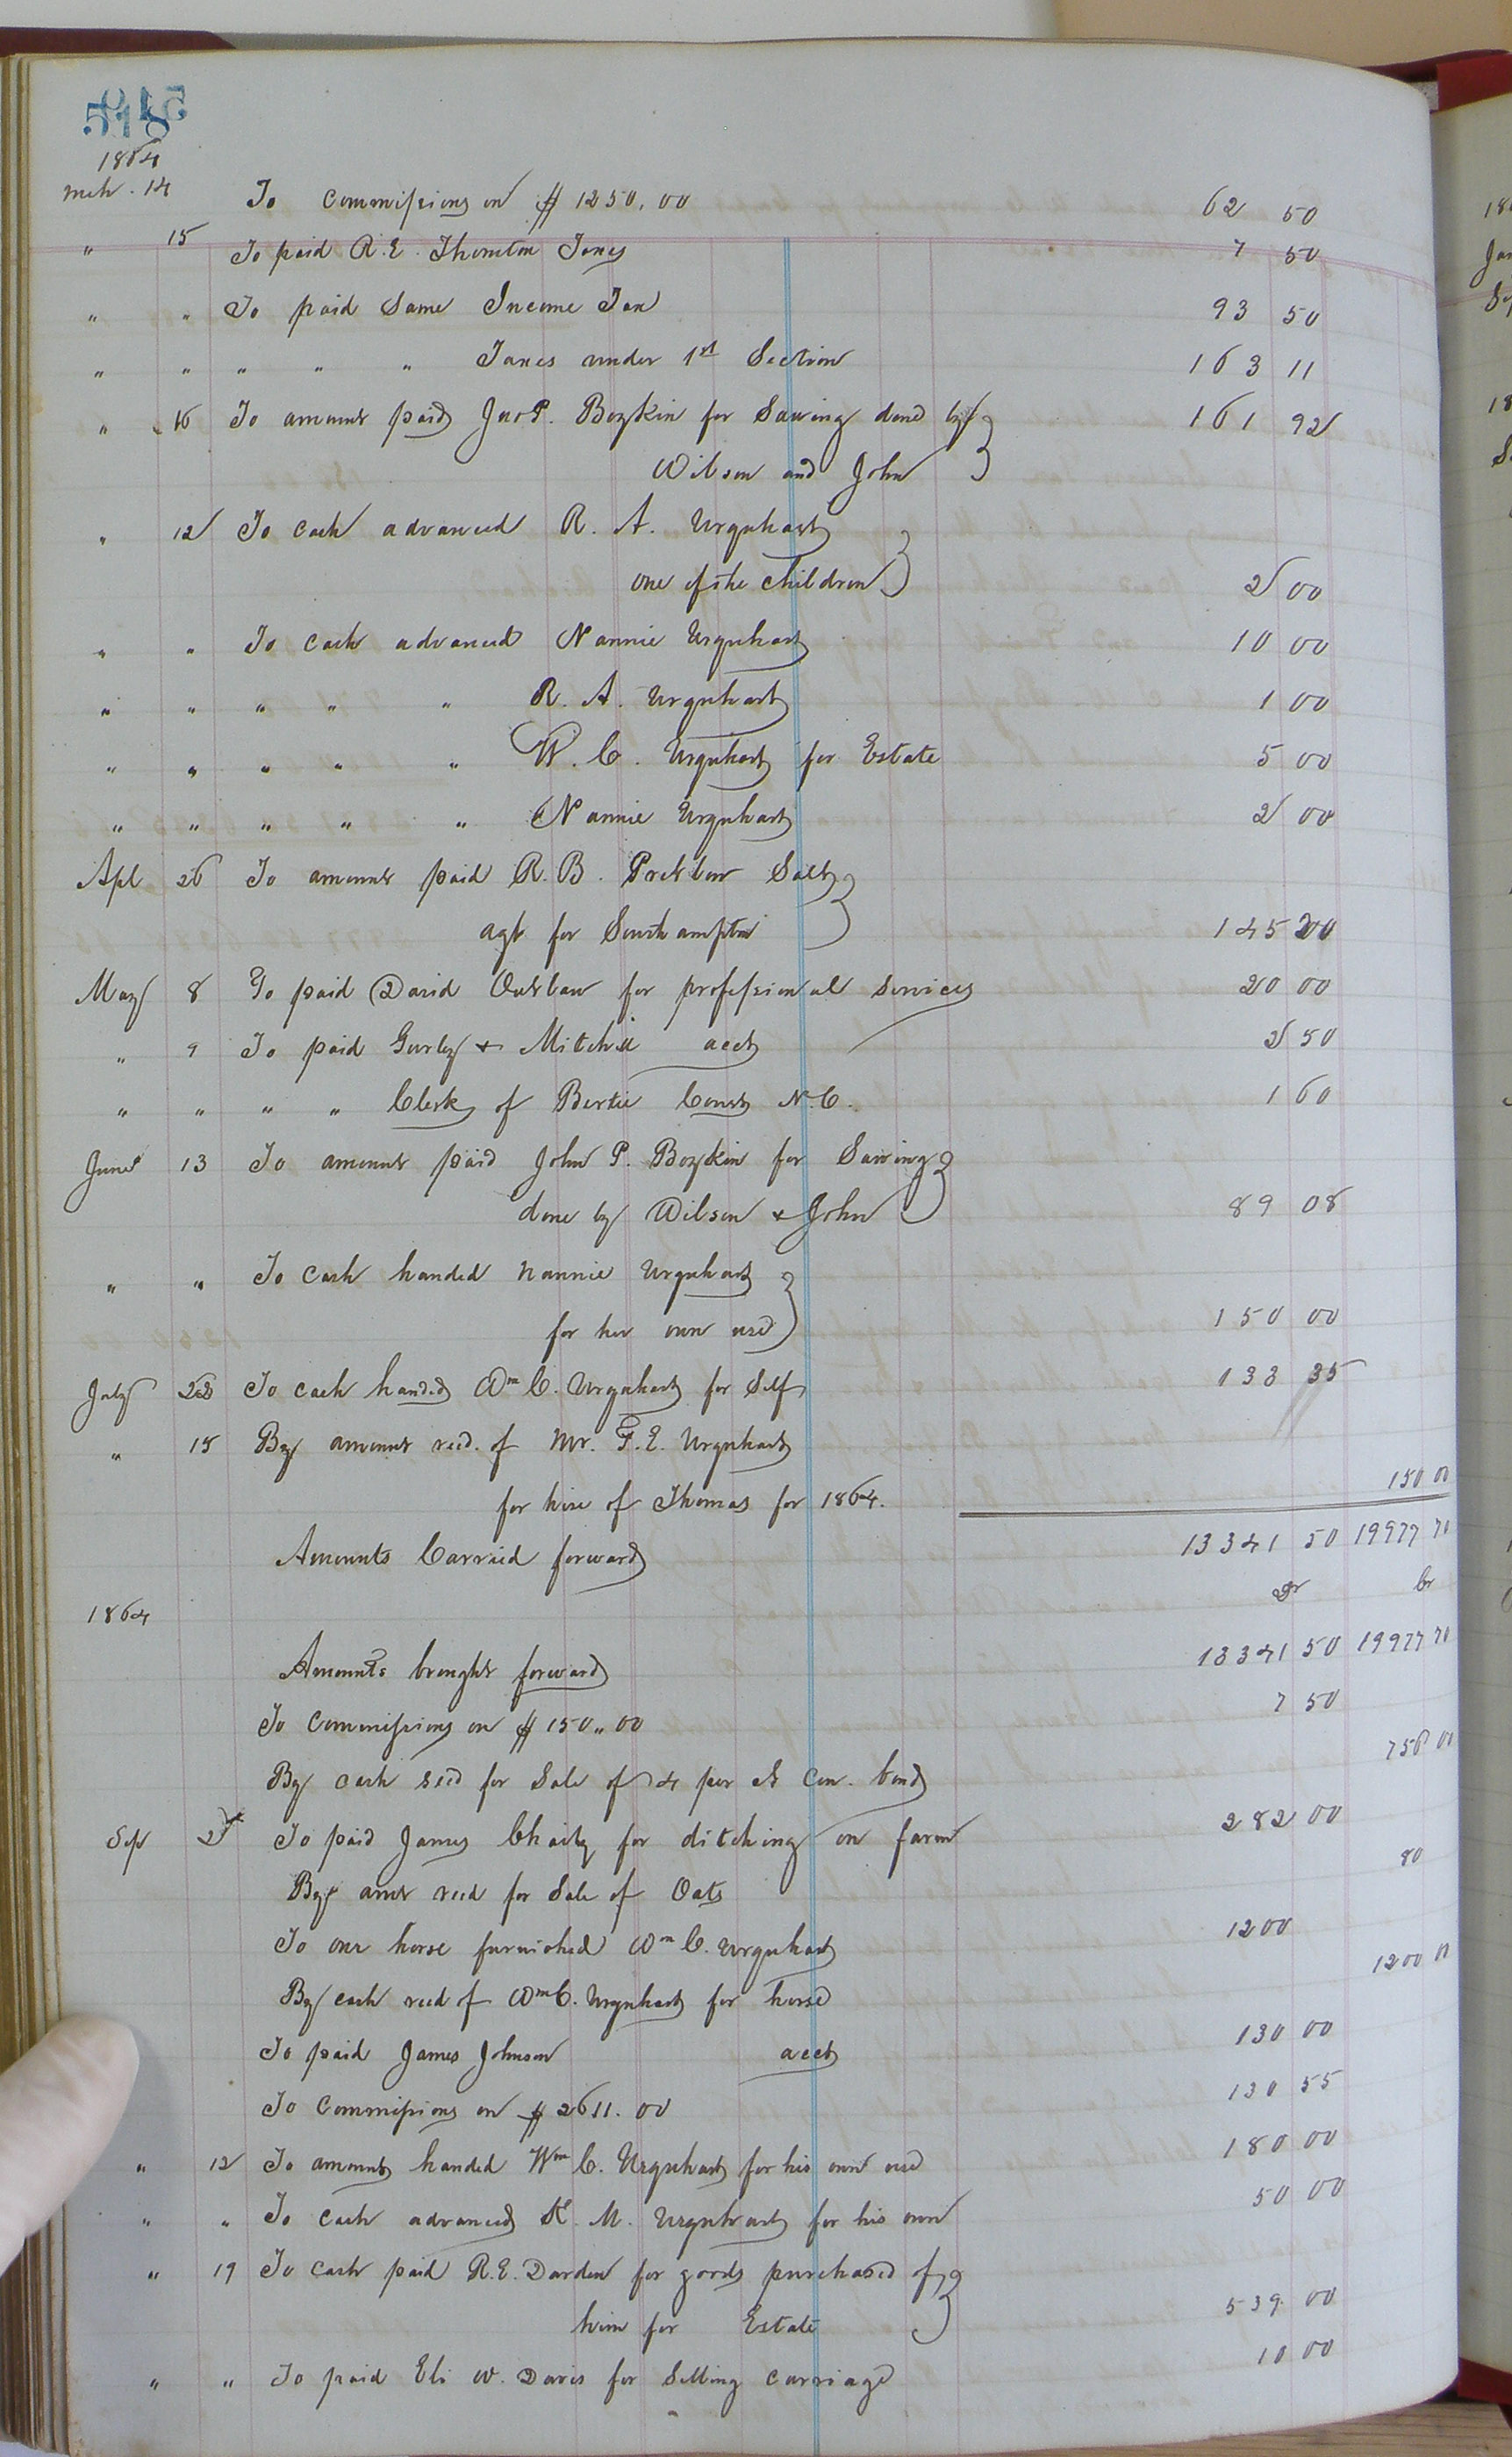 518
1864
mch. 14 To Commissions on $1250.00 62 50
" 15 To paid R. E. Thornton Taxes 7 50
" " To paid Same Income Tax 93 50
" " " " " Taxes under 1st Section 163 11
" 16 To amount paid Jno P. Boykin for Sawing done by 161 92
Wilson and John
" 12 To cash advanced R. A. Urquhart
one of the children 2 00
" " To cash advanced Nannie Urquhart 10 00
" " " " " R. A. Urquhart 1 00
" " " " " W. C. Urquhart for Estate 5 00
" " " " " Nannie Urquhart 2 00
Apl 26 To amount paid R. B. Pretlow Salt
agt for Southampton 145 20
May 8 To paid David Outlaw for professional services 20 00
" 9 To paid Gurley + Mitchell acct 2 50
" " " " Clerk of Bertie Court N. C. 1 60
June 13 To amount paid John P. Boykin for Sawing
done by Wilson + John 89 08
" " To Cash handed Nannie Urquhart
for her own use 150 00
July 22 To cash handed Wm C. Urquhart for Self 133 35
" 15 By amount recd. of Mr. F. E. Urquhart
for hire of Thomas for 1864. 150 00
Amounts Carried forward 13341 50 19977 70
Dr Cr
1864
Amounts brought forward 13341 50 19977 70
To Commissions on $150..00 7 50
By cash recd for Sale of 4 per ct Con. bond 756 00
Sep 2 To paid James Chaity for ditching on farm 282 00
By amt recd for Sale of Oats 80
To one horse furnished Wm C. Urquhart 1200
By cash recd of Wm C. Urquhart for horse 1200 00
To paid James Johnson acct 130 00
To Commissions on $2611.00 130 55
" 12 To amount handed Wm C. Urquhart for his own use 180 00
" " To cash advanced K. M. Urquhart for his own 50 00
" 19 To cash paid R. E. Darden for goods purchased of
him for Estate 539 00
" " To paid Eli W. Davis for Selling Carriage 10 00